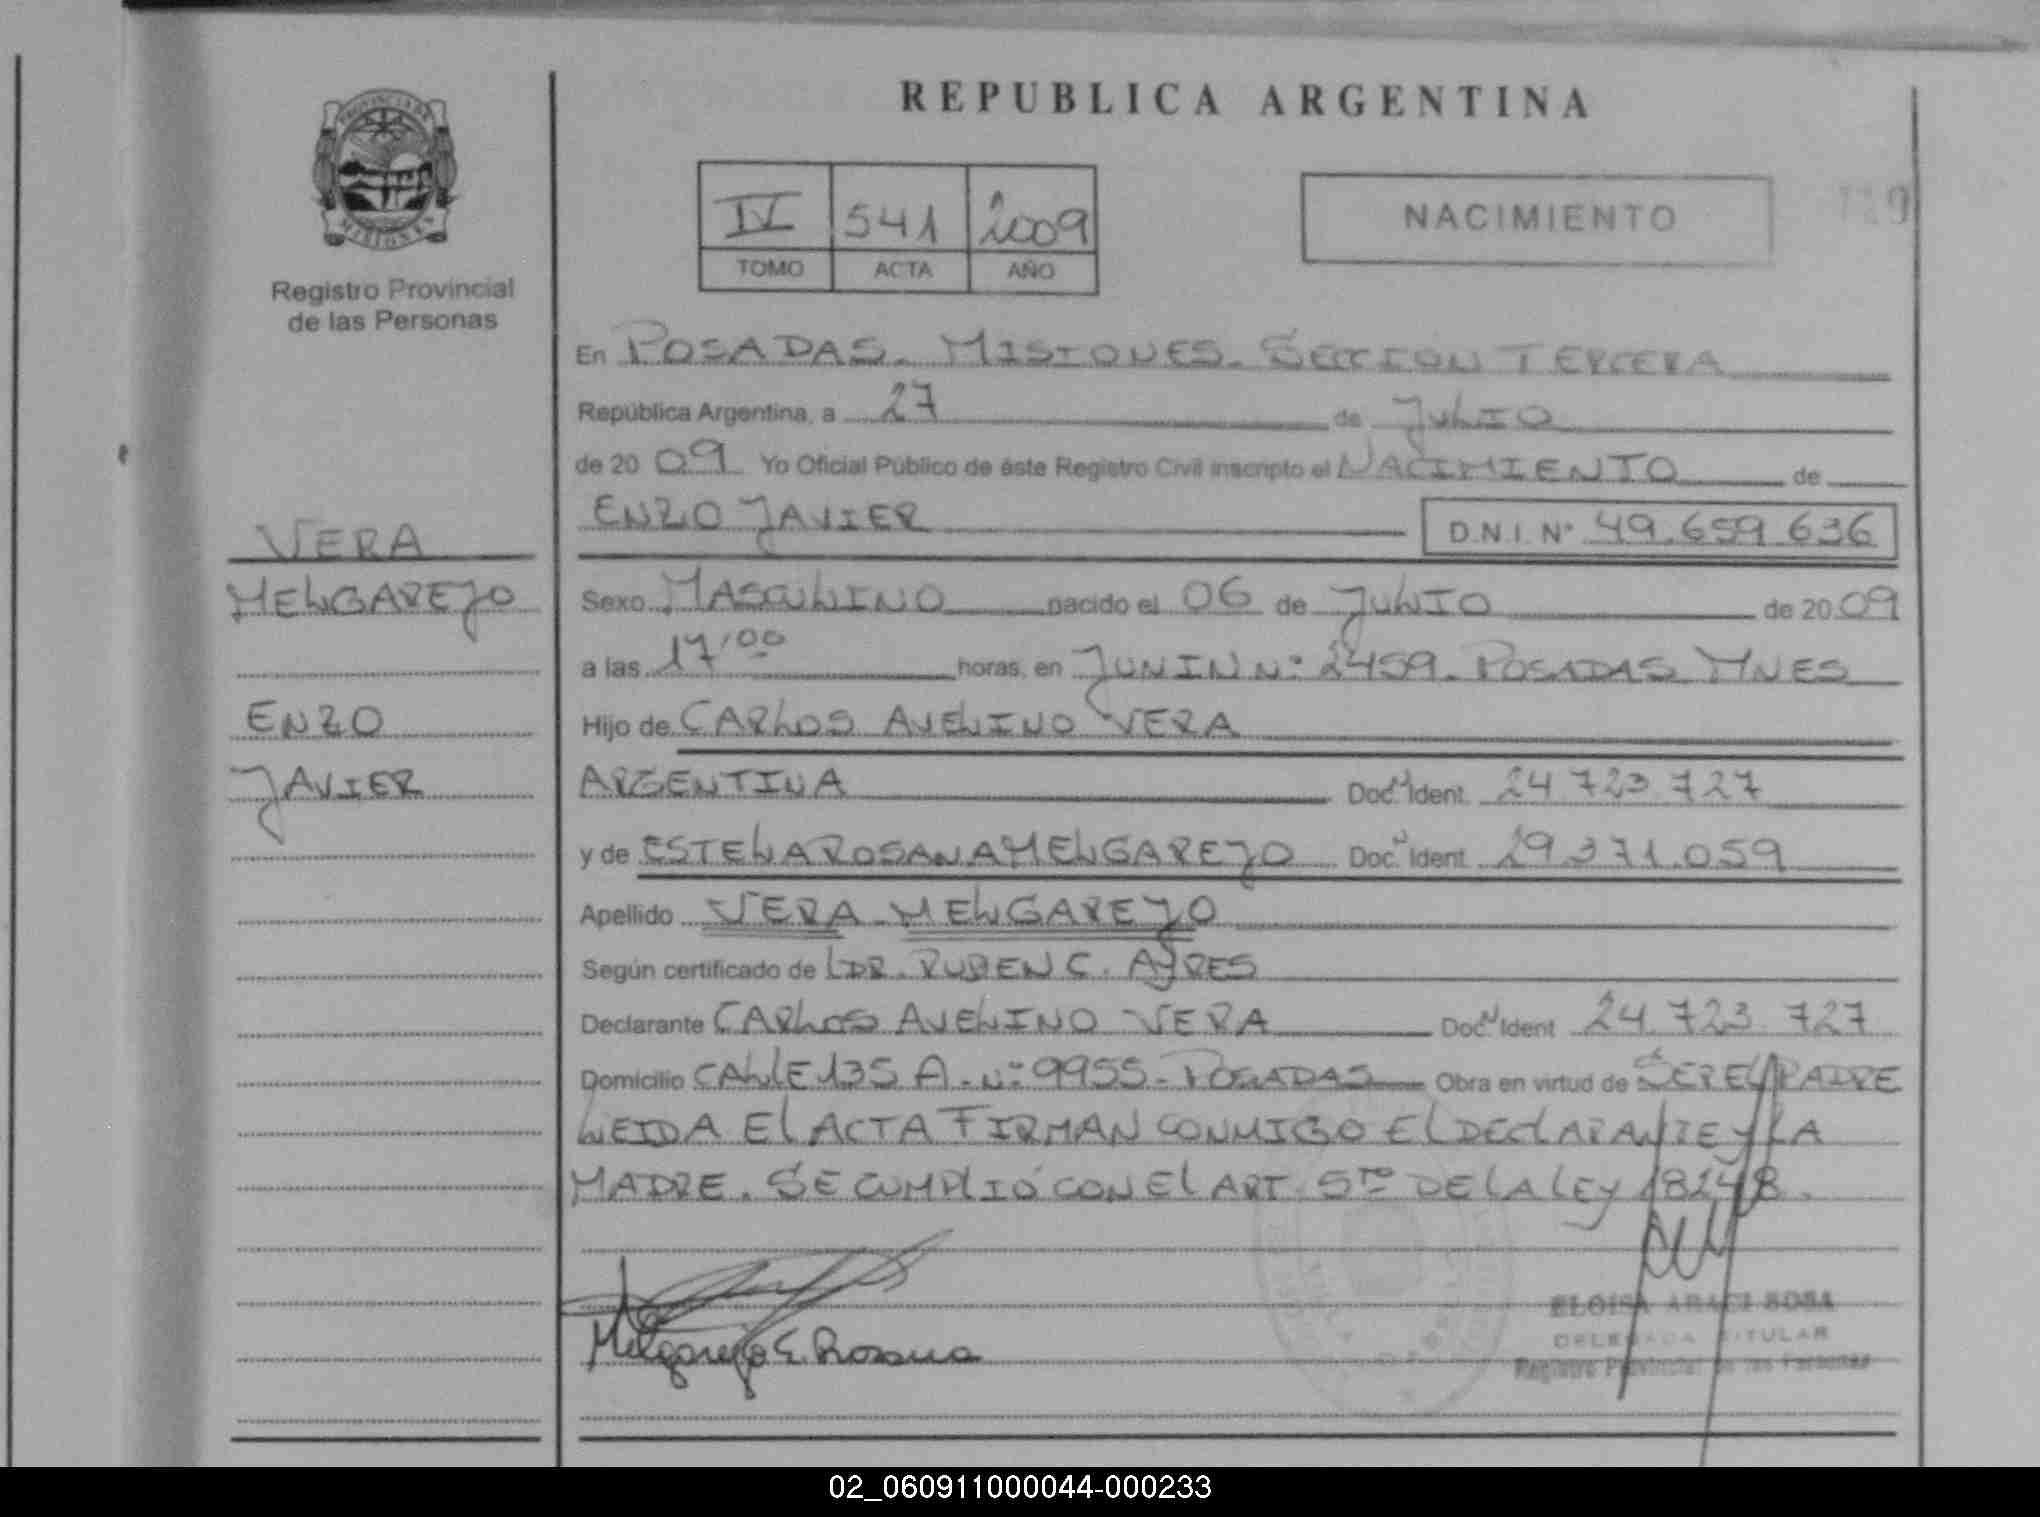 REPUBLICA ARGENTINA
PROVINCIA DE
MISIONES
Registro Provincial
de las Personas
IV 541 2009
TOMO ACTA AÑO
NACIMIENTO
En POSADAS. MISIONES. SECCION TERCERA
República Argentina, a 27 de JULIO
de 2009 Yo Oficial Público de éste Registro Civil inscripto el NACIMIENTO de
ENZO JAVIER D.N.I. Nº 49.659.636
VERA
MELGAREJO
ENZO
JAVIER
Sexo MASCULINO nacido el 06 de JULIO de 2009
a las 17'00 horas, en JUNIN Nº 2459. POSADAS MNES
Hijo de CARLOS AVELINO VERA
ARGENTINA Doc. N Ident. 24.723.727
y de ESTELA ROSANA MELGAREJO Doc. N Ident. 29.371.059
Apellido VERA MELGAREJO
Según certificado de LDR. RUBEN C. AYRES
Declarante CARLOS AVELINO VERA Doc. N Ident 24.723.727
Domicilio CALLE 135 A. Nº 9955. POSADAS Obra en virtud de SER EL PADRE
LEIDA El ACTA FIRMAN CONMIGO El DEClARANTE y LA
MADRE. SE CUMPLIÓ CON El ART. 5TO DE LA LEY 18248.
Melgarejo E. Rosana
ELOISA ARACI SOSA
DELEGADA TITULAR
Registro Provincial de las Personas
02_060911000044-000233